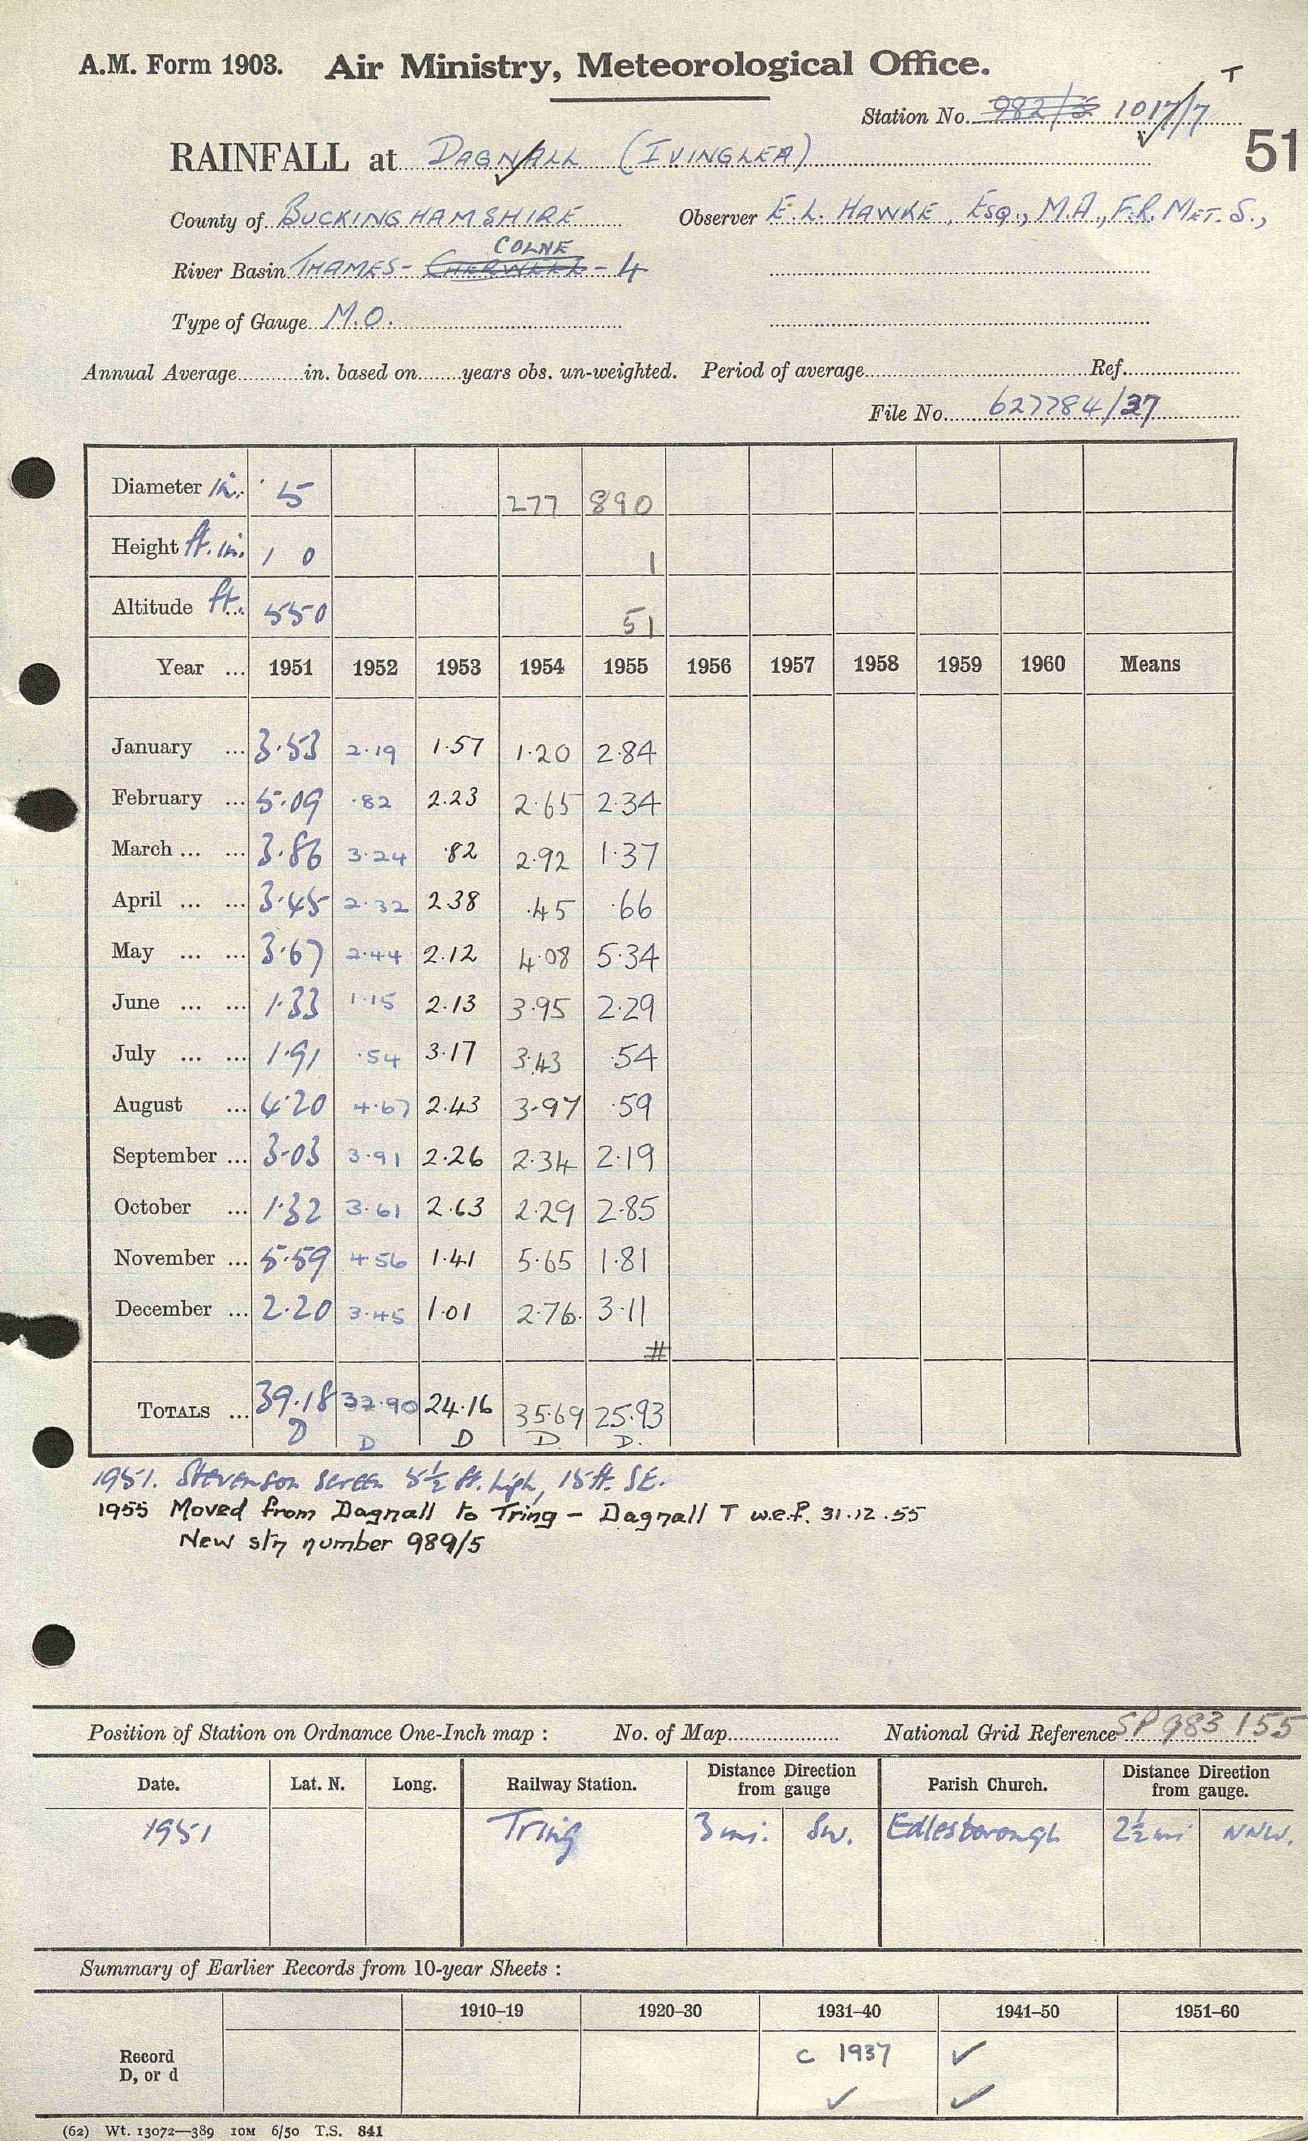 A.M. Form 1903. Air Ministry, Meteorological Office.
T
Station No. 982/5 1017/7
51
RAINFALL at DAGNALL (IVINGLEA)
County of BUCKINGHAMSHIRE Observer E. L. HAWKE, ESQ., M.A., F.R. MET. S.,
COLNE
River Basin THAMES - CHERWELL - 4
Type of Gauge M.O.
Annual Average in. based on years obs. un-weighted. Period of average Ref.
File No. 627784/37
Diameter in. 5 277 890
Height ft. in. 1 0 1
Altitude ft. 550 51
Year ... 1951 1952 1953 1954 1955 1956 1957 1958 1959 1960 Means
January ... 3.53 2.19 1.57 1.20 2.84
February ... 5.09 .82 2.23 2.65 2.34
March ... ... 3.86 3.24 .82 2.92 1.37
April ... ... 3.45 2.32 2.38 .45 .66
May ... ... 3.67 2.44 2.12 4.08 5.34
June ... ... 1.33 1.15 2.13 3.95 2.29
July ... ... 1.91 .54 3.17 3.43 .54
August ... 4.20 4.67 2.43 3.97 .59
September ... 3.03 3.91 2.26 2.34 2.19
October ... 1.32 3.61 2.63 2.29 2.85
November ... 5.59 4.56 1.41 5.65 1.81
December ... 2.20 3.45 1.01 2.76 3.11
#
TOTALS ... 39.18 32.90 24.16 35.69 25.93
D D D D. D.
1951. Stevenson screen 5½ ft. high, 15ft. SE.
1955 Moved from Dagnall to Tring – Dagnall T w.e.f. 31.12.55
New stn number 989/5
Position of Station on Ordnance One-Inch map : No. of Map National Grid Reference SP 983 155
Date. Lat. N. Long. Railway Station. Distance from gauge Direction Parish Church. Distance from gauge. Direction
1951 Tring 3 mi. SW. Edlesborough 2½ mi NNW.
Summary of Earlier Records from 10-year Sheets :
1910–19 1920–30 1931–40 1941–50 1951–60
Record D, or d c 1937 ✓
✓ ✓
(62) Wt. 13072—389 10M 6/50 T.S. 841